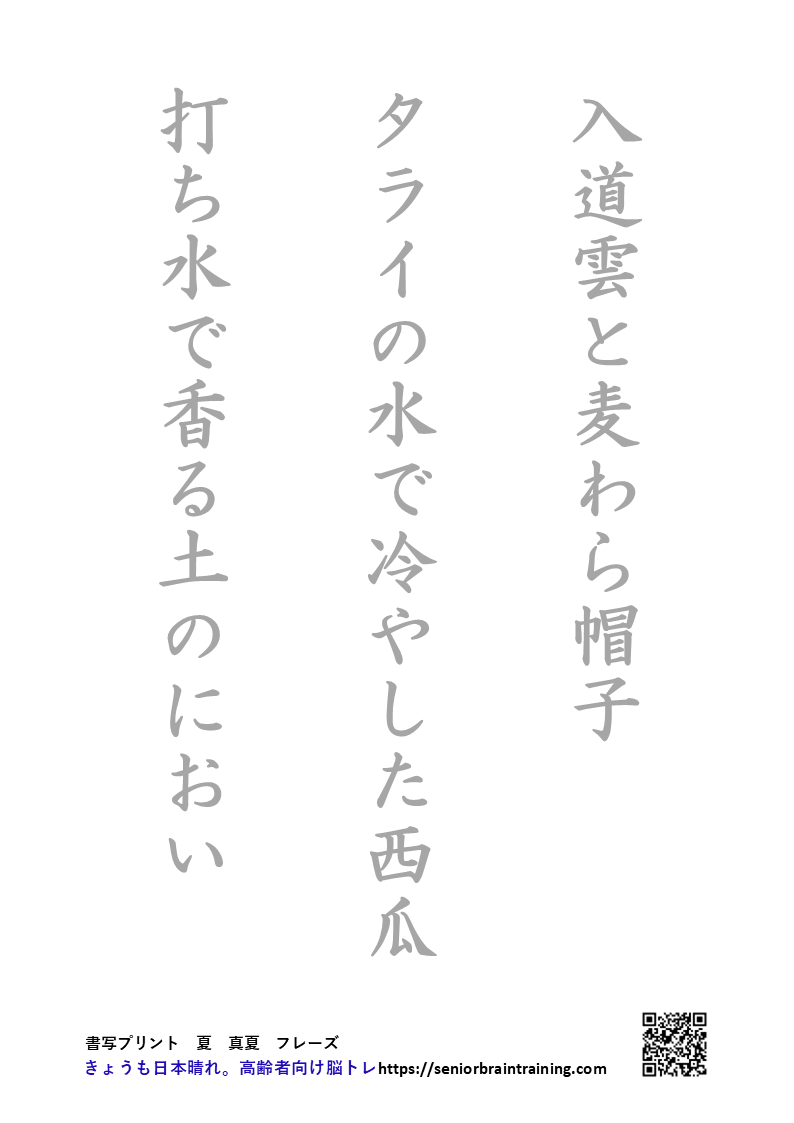 入道雲と麦わら帽子
タライの水で冷やした西瓜
打ち水で香る土のにおい
書写プリント　夏　真夏　フレーズ
きょうも日本晴れ。高齢者向け脳トレhttps://seniorbraintraining.com